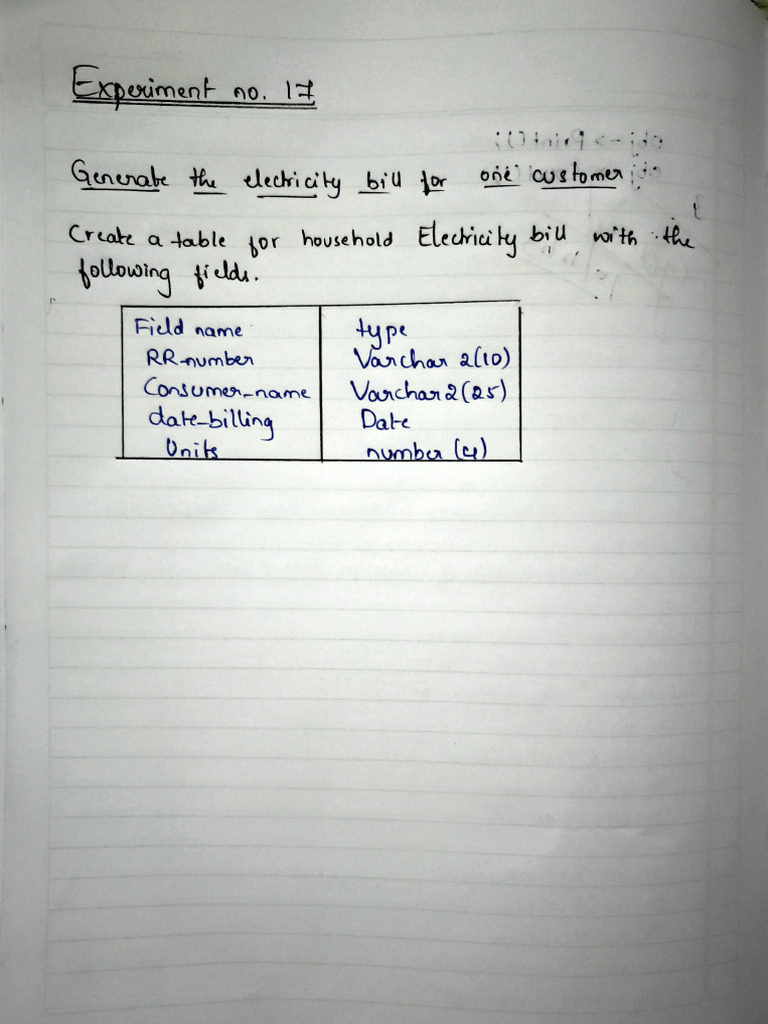 Experiment no. 17
Generate the electricity bill for one customer
Create a table for household Electricity bill with the
following fields.
Field name type
RR-number Varchar 2(10)
Consumer_name Varchar2(25)
date_billing Date
Units number (4)